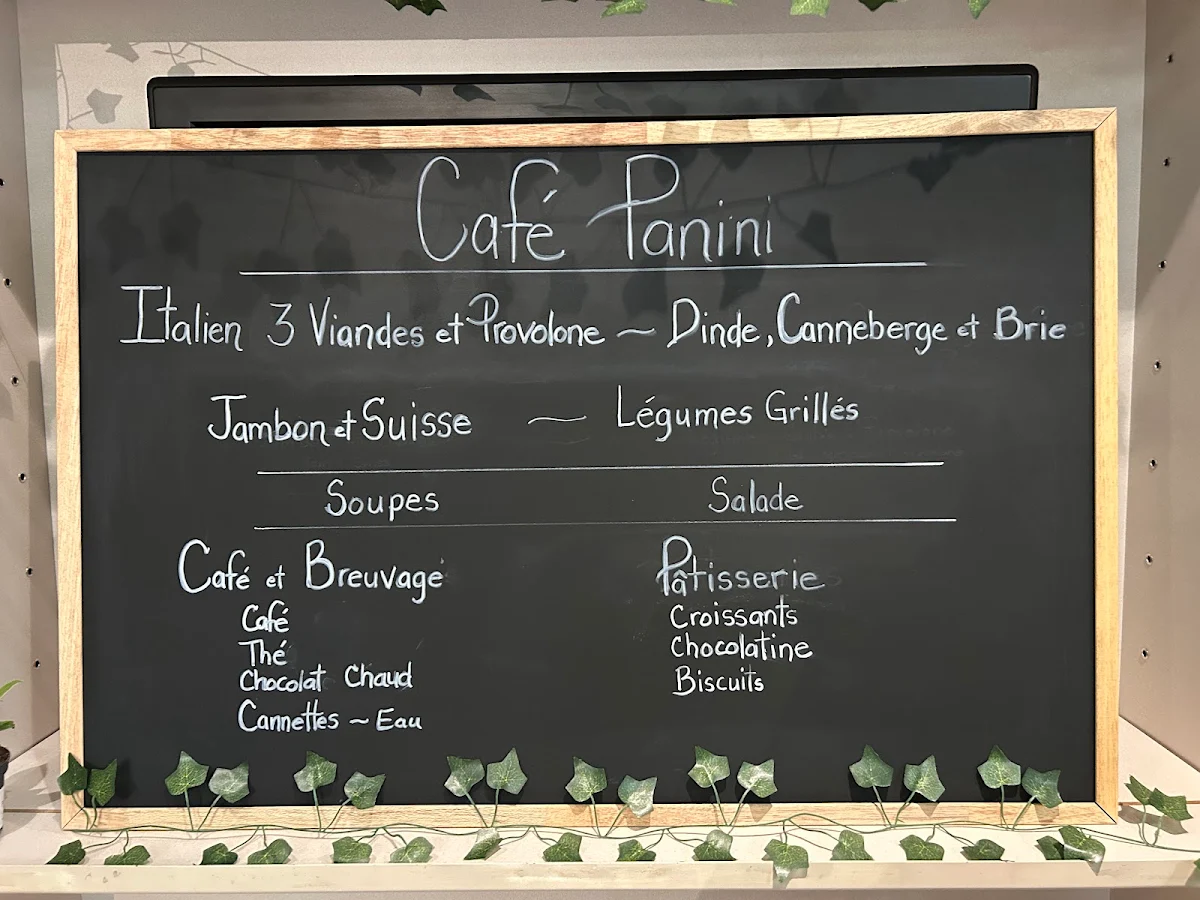 Café Panini
Italien 3 Viandes et Provolone ~ Dinde, Canneberge et Brie
Jambon et Suisse ~ Légumes Grillés
Soupes Salade
Café et Breuvage
Café
Thé
Chocolat Chaud
Cannettes ~ Eau
Pâtisserie
Croissants
Chocolatine
Biscuits